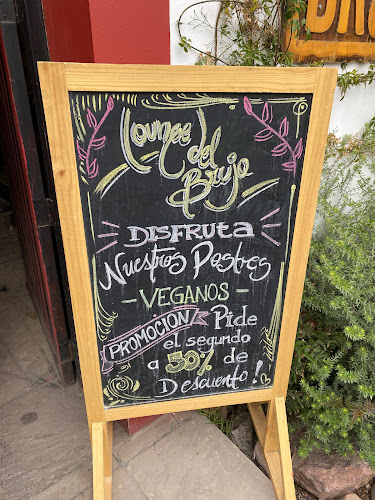 Lounge del
Brujo
DISFRUTA
Nuestros Postres
- VEGANOS -
PROMOCIÓN Pide
el segundo
a 50% de
Descuento!